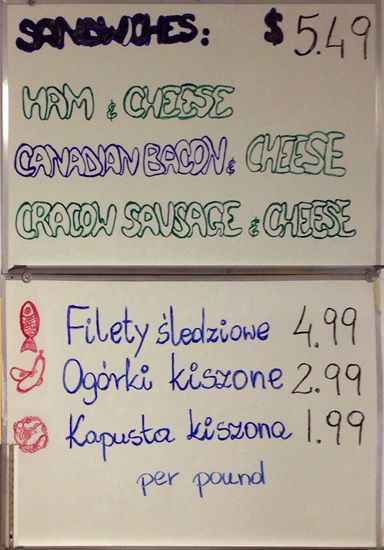 SANDWICHES: $5.49
HAM & CHEESE
CANADIAN BACON & CHEESE
CRACOW SAUSAGE & CHEESE
Filety śledziowe 4.99
Ogórki kiszone 2.99
Kapusta kiszona 1.99
per pound